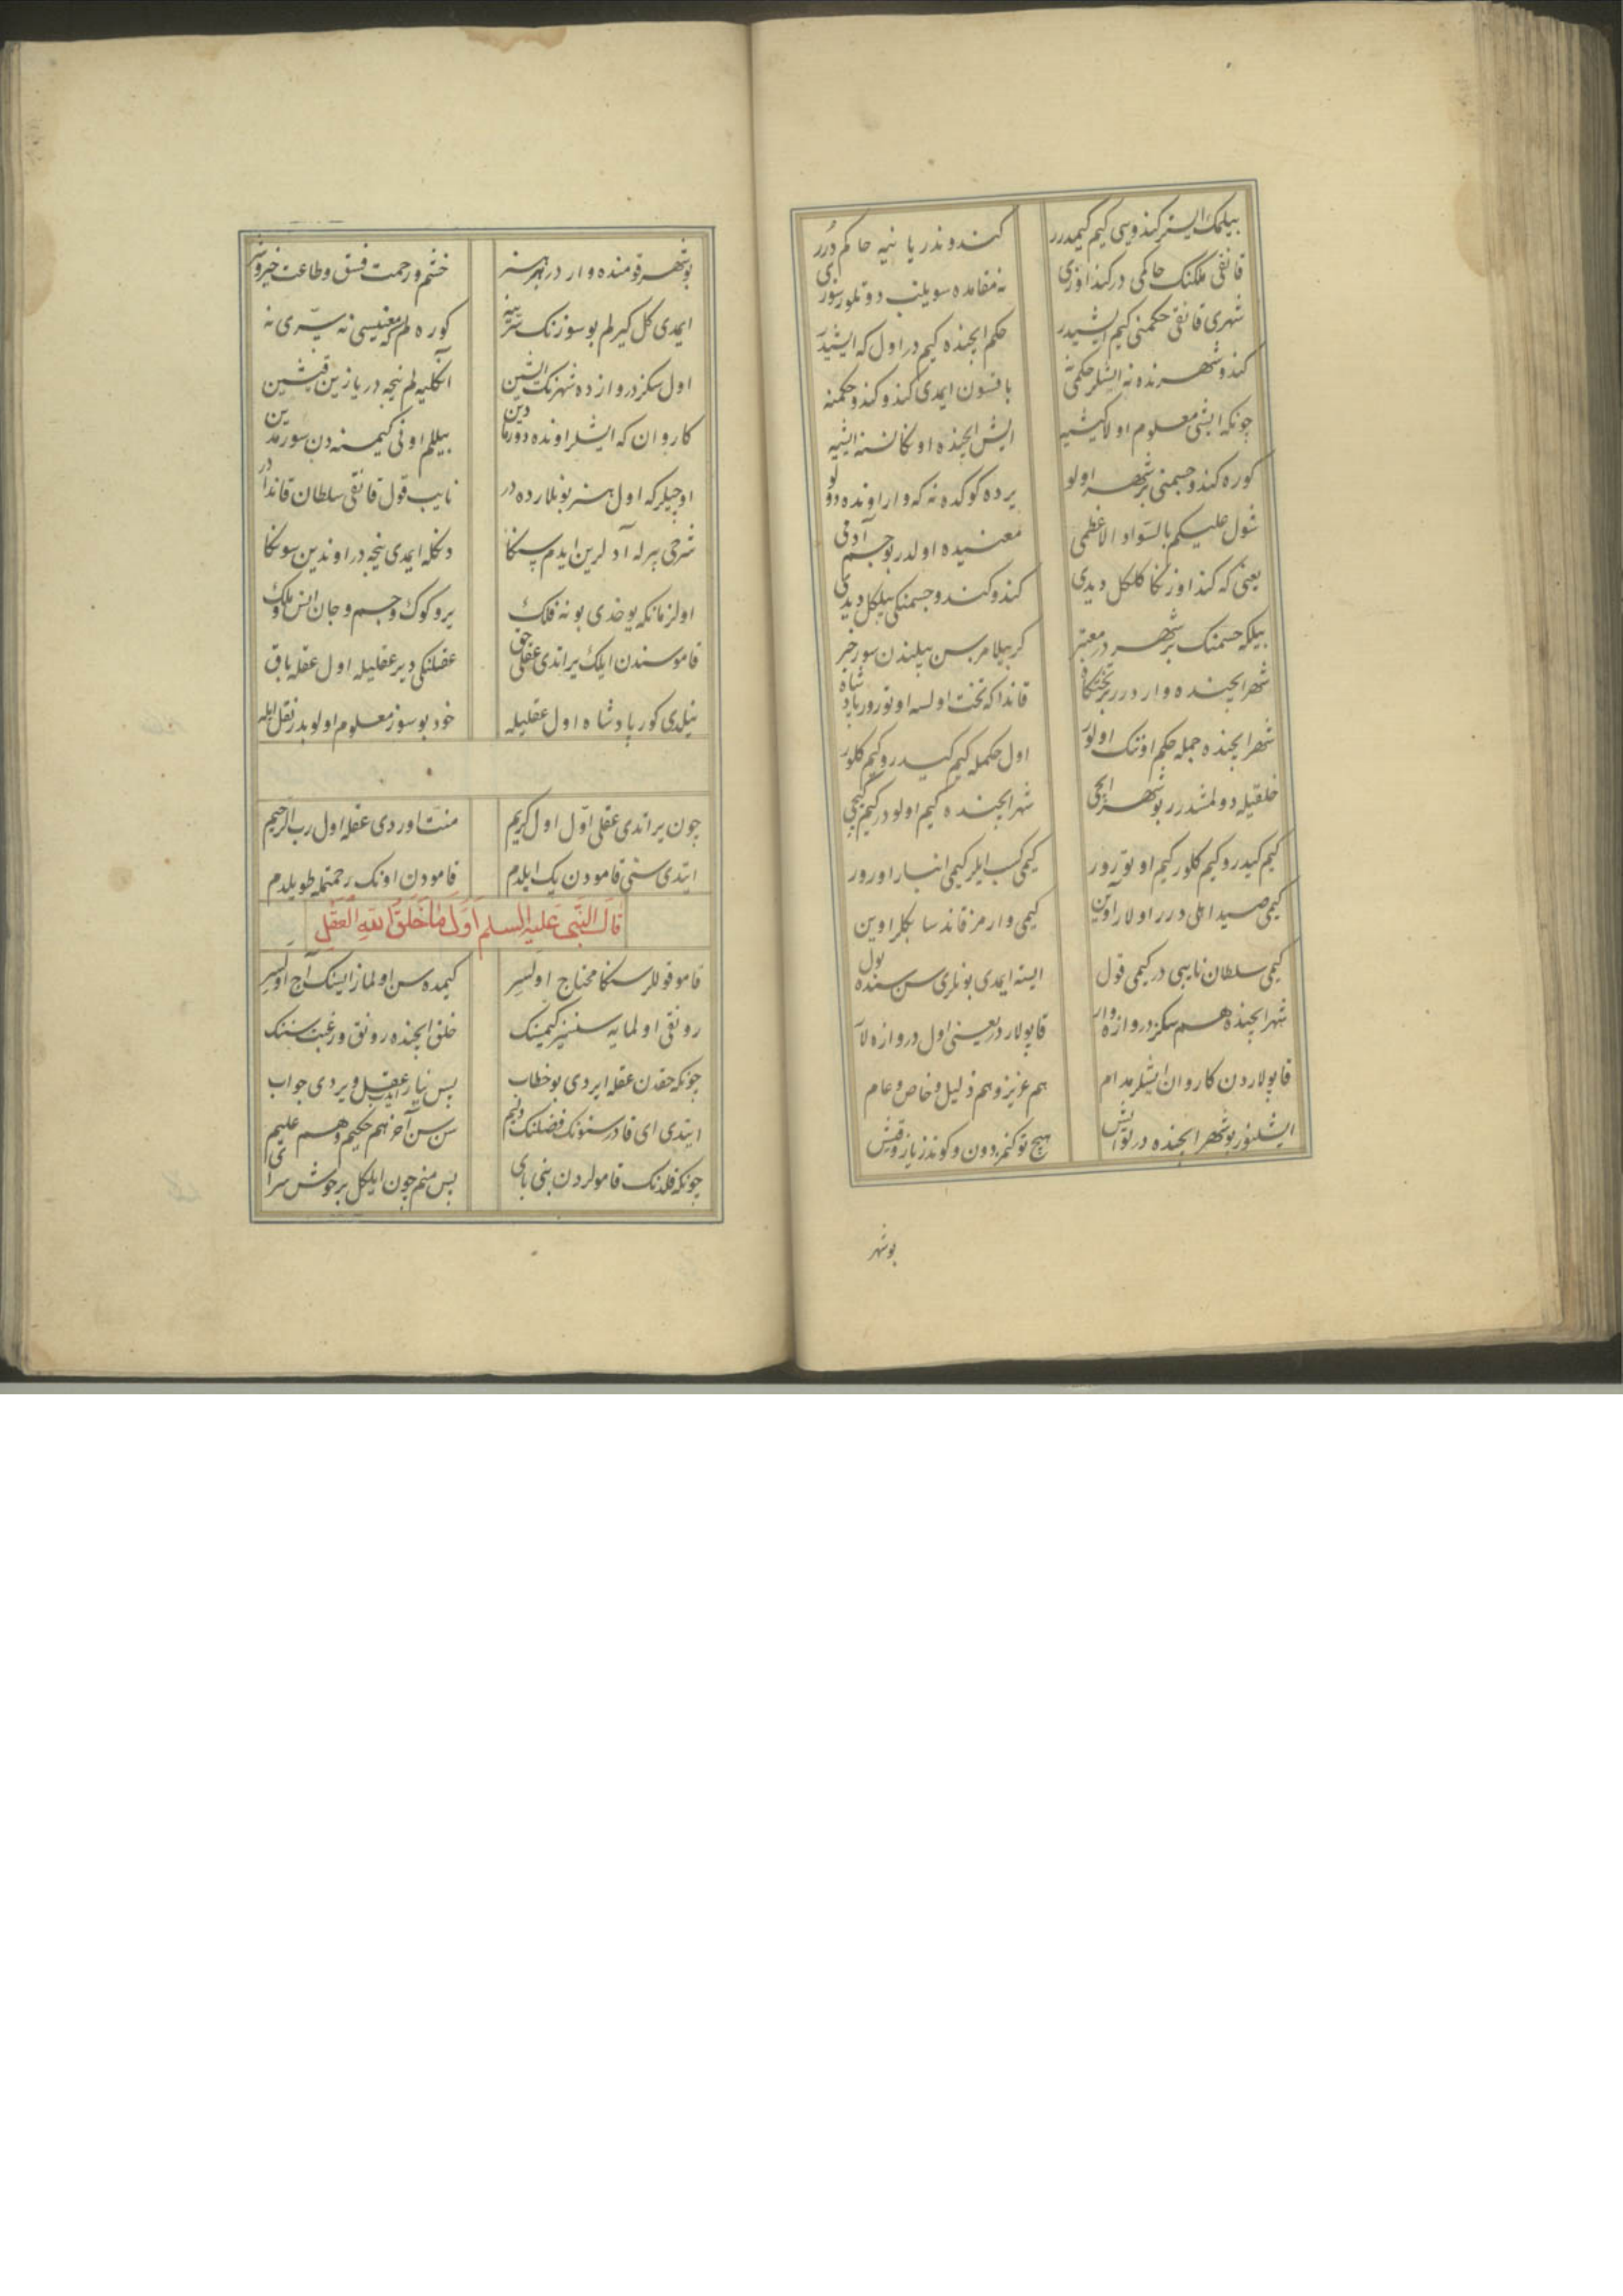 بیلمك ایستر كندویی كیم كیمدرر كندوندر یا نیه حاكم دُرر
قانقی ملكنك حاكمی در كنداوزی نه مقامده سویلنب دوتلور سوزی
شهری قانقی حكمنی كیم ایشیدر حكم ایچنده كیم در اول كه ایشیدر
كندو شهرنده نه ایشلر حكمی نه باقسون ایمدی كندو كندو حكمنه
چونكه ایشی معلوم اولا كیشیه ایش ایچنده اوكا نسنه ایشیه
كوره كندو جسمنی بر شهر اولو یرده كوكده نه كه وار اونده دولو
شول علیكم بالسواد الاعظمی معنیده اولدر بو جسم آدمی
یعنی كه كنداوزنكا كلكل دیدی كندو كندو جسمنكی بیلكل دیدی
بیلكه جسمنك بر شهردر معتبر كر بیلامزسن بیلندن سور خبر
شهر ایچنده وار درر بر تختكاه قانداكه تخت اولسه اوتورور پادشاه
شهر ایچنده جمله حكم اونك اولور اول حكمله كیم كیدر و كیم كلور
خلقیله دولمشدرر بو شهر ایچی شهر ایچنده كیم اولودر كیم كیچی
كیم كیدر و كیم كلور كیم اوتورور كیمی كسب ایلر كیمی انبار اورور
كیمی صید اهلی درر اولار آوین كیمی وارمز قاندسا بكلر اوین
كیمی سلطان نایبی در كیمی قول ایسته ایمدی بونلری سن سنده بول
شهر ایچنده هم سكز دروازه وار قاپولار در یعنی اول دروازه لار
قاپولاردن كاروان ایشلر مدام هم عزیز و هم ذلیل و خاص و عام
ایشلنور بو شهر ایچنده در لو ایش هیچ توكنمز دون و كوندز یاز و قیش
بو شهر
بو شهر قومنده وار در هر هنر خشم و رحمت فسق و طاعت خیر و شر
ایمدی كل كیرلم بو سوزنك سرّینه كوره لم كه معنیسی نه سرّی نه
اول سكز دروازه شهرنك ایشین اكلیه لم نیجه در یازین قیشین
كاروان كه ایشلر اونده دورمادین بیللم اونی كیمسنه دن سورمدین
اوچیلر كه اول هنر بونلارده در نایب قول قانقی سلطان قاندادر
شرحی بیرله آدلرین ایدم سكا دكله ایمدی نیجه در اوندین سوكا
اول زمانكه یوخدی بو نه فلك یر و كوك و جسم و جان انس و ملك
قاموسندن ایلك یراتدی عقلی حق عقلنكی دیر عقلیله اول عقله باق
نیلدی كور پادشاه اول عقلیله خود بو سوز معلوم اولوبدر نقل ایله
چون یراتدی عقلی اوّل اول كریم منّت اوردی عقله اول رب الرحیم
ایتدی سنی قامودن یك ایلدم قامودن اونك رحمتمله طویلدم
قال النّبی علیه السلم اوّل ما خلق الله العقل
قامو قوللر سكا محتاج اولسر كیمده سن اولمازایسنك آج اولسر
رونقی اولمایه سنسیز كیمسنك خلق ایچنده رونق و رغبت سننك
چونكه حقدن عقله ایردی بو خطاب پس نیاز ایدب عقل ویردی جواب
ایتدی ای قادر سنونك فضلنك دایم سن سن آخر هم حكیم و هم علیم
چونكه قلدنك قامولردن بنی بای پس منم چون ایلكل بر خوش سرای